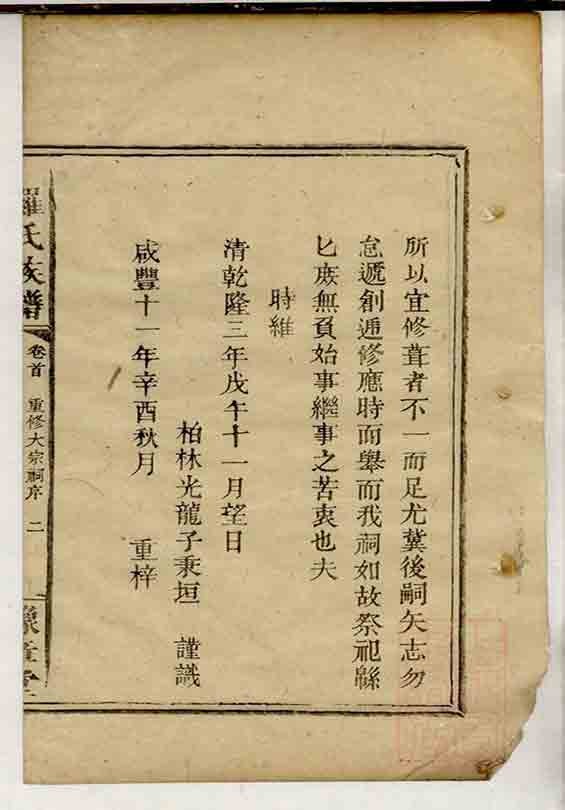 所以宜修葺者不一而足尤冀後嗣矢志勿
怠遞創遞修應時而舉而我祠如故祭祀緜
匕庶無負始事繼事之苦衷也夫
時維
清乾隆三年戊午十一月望日
柏林光龍子秉垣 謹識
咸豐十一年辛酉秋月 重梓
羅氏族譜
卷首 重修大宗祠序 二
豫章堂